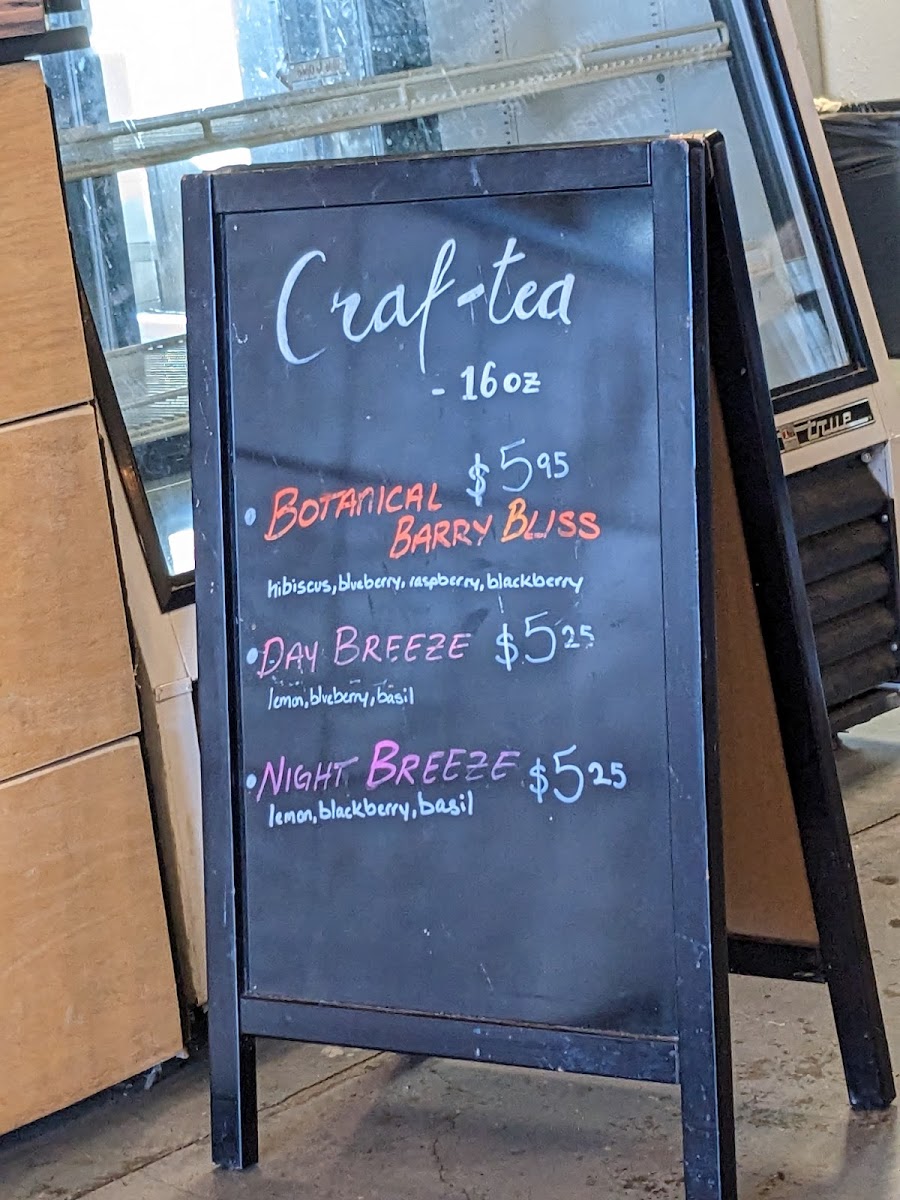 Craf-tea
- 16oz
$5.95
• BOTANICAL
BARRY BLISS
hibiscus, blueberry, raspberry, blackberry
• DAY BREEZE $5.25
lemon, blueberry, basil
• NIGHT BREEZE $5.25
lemon, blackberry, basil
true